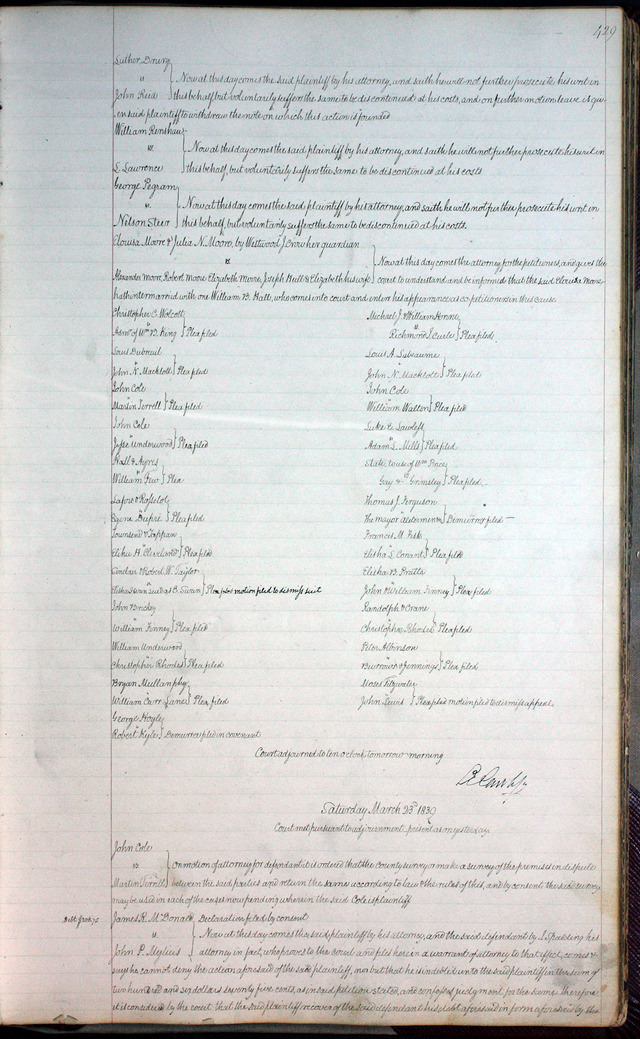 429
Luther Drury
vs
Now at this day comes the said plaintiff by his attorney, and saith he will not further prosecute his writ in
John Reid
this behalf but voluntarily suffers the same to be discontinued at his costs, and on further motion leave is giv-
en said plaintiff to withdraw the note on which this action is founded
William Renshaw
vs
Now at this day comes the said plaintiff by his attorney, and saith he will not further prosecute his suit in
L. Lawrence
this behalf, but voluntarily suffers the same to be discontinued at his costs
George Pegram
vs
Now at this day comes the said plaintiff by his attorney, and saith he will not further prosecute his writ in
Nilson Steer
this behalf, but voluntarily suffers the same to be discontinued at his costs.
Clouisa Moore & Julia N. Moore, by Westwood J. Crow her guardian
vs
Now at this day comes the attorney for the petitioners, and gives the
Alexander Moore, Robert Moore Elizabeth Moore, Joseph Hull & Elizabeth his wife
court to understand and be informed that the said Moore
hath intermarried with one William B. Hall, who comes into court and enters his appearance as co petitioner in this cause
Christopher C. Wolcott
vs
Admr of Wm B. King Plea filed
Louis Dubreuil
vs
John N. Macklott Plea filed
John Cole
vs
Martin Terrell Plea filed
John Cole
vs
Jesse Underwood Plea filed
Hall & Ayres
vs
William Few Plea
Lafore & Rosselot
vs
Dupré Plea filed
Townsend & Tappan
vs
Elihu H. Cleveland Plea filed
Sinclair & Robert W. Taylor
vs
Plea filed motion filed to dismiss suit
John Brickey
vs
William Finney Plea filed
William Underwood
vs
Christopher Rhodes Plea filed
Bryan Mullanphy
vs
William Carr Lane Plea filed
George Hoyle
vs
Robert Kyle Demurrer filed in covenant
Michael J. & William
vs
Richmond J. Curle Plea filed
Louis A. Labeaume
vs
John N. Macklott Plea filed
John Cole
vs
William Walton Plea filed
Luke E. Lawless
vs
Adam L. Mills Plea filed
State to use of Wm Price
vs
Guy & Grimsley Plea filed
Thomas J. Ferguson
vs
The Mayor Aldermen Demurrer filed
Francis M. Fisk
vs
Elisha S. Conant Plea filed
Elisha B. Pratte
vs
John & William Finney Plea filed
Randolph & Crane
vs
Christopher Rhodes Plea filed
Peter Albinson
vs
Burrows & Jennings Plea filed
Moses Fitzwater
vs
John Lewis Plea filed motion filed to dismiss appeal
Court adjourned to ten o'clock tomorrow morning
Saturday March 23d 1839
Court met pursuant to adjournment, present as on yesterday
John Cole
vs
On motion of attorney for defendant it is ordered that the county surveyor make a survey of the premises in dispute
Martin Terrell
between the said parties and return the same according to law & the rules of this, and by consent the said survey
may be used in each of the cases now pending wherein the said Cole is plaintiff
James R. McDonald Declaration filed by consent
Debt
vs
Now at this day comes the said plaintiff by his attorney, and the said defendant by J. Spalding his
John P. Mylius
attorney in fact, who proves to the court and files here in a warrant of attorney to that effect, comes &
says he cannot deny the action aforesaid of the said plaintiff, nor but that he is indebted unto the said plaintiff in the sum of
two hundred and six dollars seventy five cents, as in said petition stated, and confesses judgment for the same therefore
it is considered by the court that the said plaintiff recover of the said defendant his debt aforesaid in form aforesaid by the